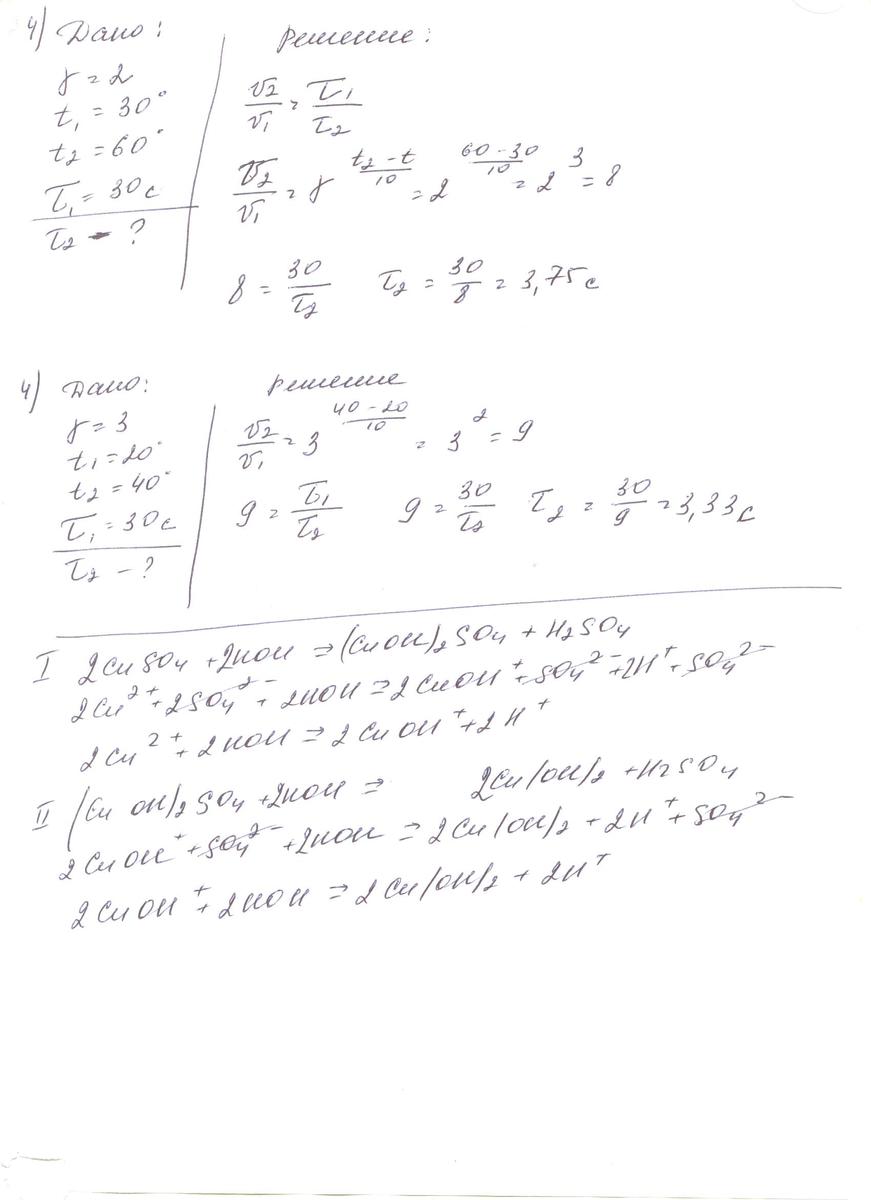 4) Дано: Решение:
γ = 2
t₁ = 30°
t₂ = 60°
τ₁ = 30 с
τ₂ - ?
v₂/v₁ = τ₁/τ₂
v₂/v₁ = γ^((t₂-t)/10) = 2^((60-30)/10) = 2³ = 8
8 = 30/τ₂ τ₂ = 30/8 = 3,75 с
4) Дано: решение
γ = 3
t₁ = 20°
t₂ = 40°
τ₁ = 30 с
τ₂ - ?
v₂/v₁ = 3^((40-20)/10) = 3² = 9
9 = τ₁/τ₂ 9 = 30/τ₂ τ₂ = 30/9 = 3,33 с
I 2CuSO₄ + 2HOH ⇒ (CuOH)₂SO₄ + H₂SO₄
2Cu²⁺ + 2SO₄²⁻ + 2HOH ⇒ 2CuOH⁺ + SO₄²⁻ + 2H⁺ + SO₄²⁻
2Cu²⁺ + 2HOH ⇒ 2CuOH⁺ + 2H⁺
II (CuOH)₂SO₄ + 2HOH ⇒ 2Cu(OH)₂ + H₂SO₄
2CuOH⁺ + SO₄²⁻ + 2HOH ⇒ 2Cu(OH)₂ + 2H⁺ + SO₄²⁻
2CuOH⁺ + 2HOH ⇒ 2Cu(OH)₂ + 2H⁺